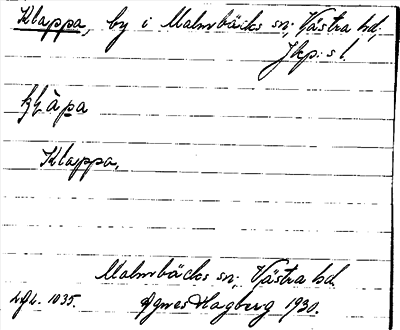 Klappa, by i Malmbäcks sn; Västra hd;
Jkp: s l.
Klappa,
Malmbäcks sn; Västra hd.
1035. Agnes Hagberg 1930.